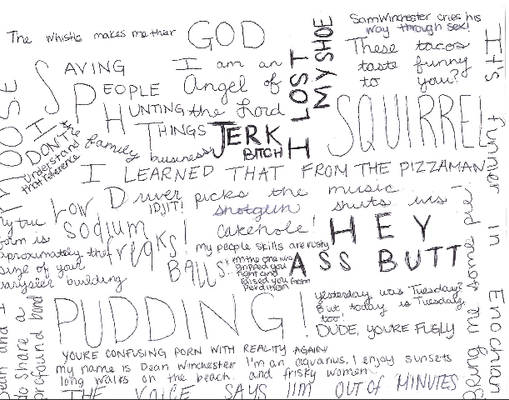 The whistle makes me their GOD
Sam Winchester cries his
way through sex!
These tacos
taste funny
to you?
LOST
MY SHOE
It's
funnier in
Enochian
SAVING
PEOPLE
HUNTING
THINGS
the family
business
I am an
Angel of
the Lord
JERK
BITCH
SQUIRREL
MOOSE
I
DON'T
understand
that reference
I LEARNED THAT FROM THE PIZZAMAN
Driver picks the music
shotgun shuts his
cakehole!
IDJIT!
Low
Sodium
freaks!
My true
form is
approximately the
size of your
chrysler building
my people skills are rusty
BALLS!
I'm the one who
gripped you
tight and
raised you from
Perdition
HEY
ASS BUTT
PUDDING!
yesterday was Tuesday?
But today is Tuesday
too!
DUDE, YOU'RE FUGLY
Dean and I
do share a
profound bond
YOU'RE CONFUSING PORN WITH REALITY AGAIN!
my name is Dean Winchester I'm an aquarius, I enjoy sunsets
long walks on the beach and frisky women
THE VOICE SAYS I'M OUT OF MINUTES